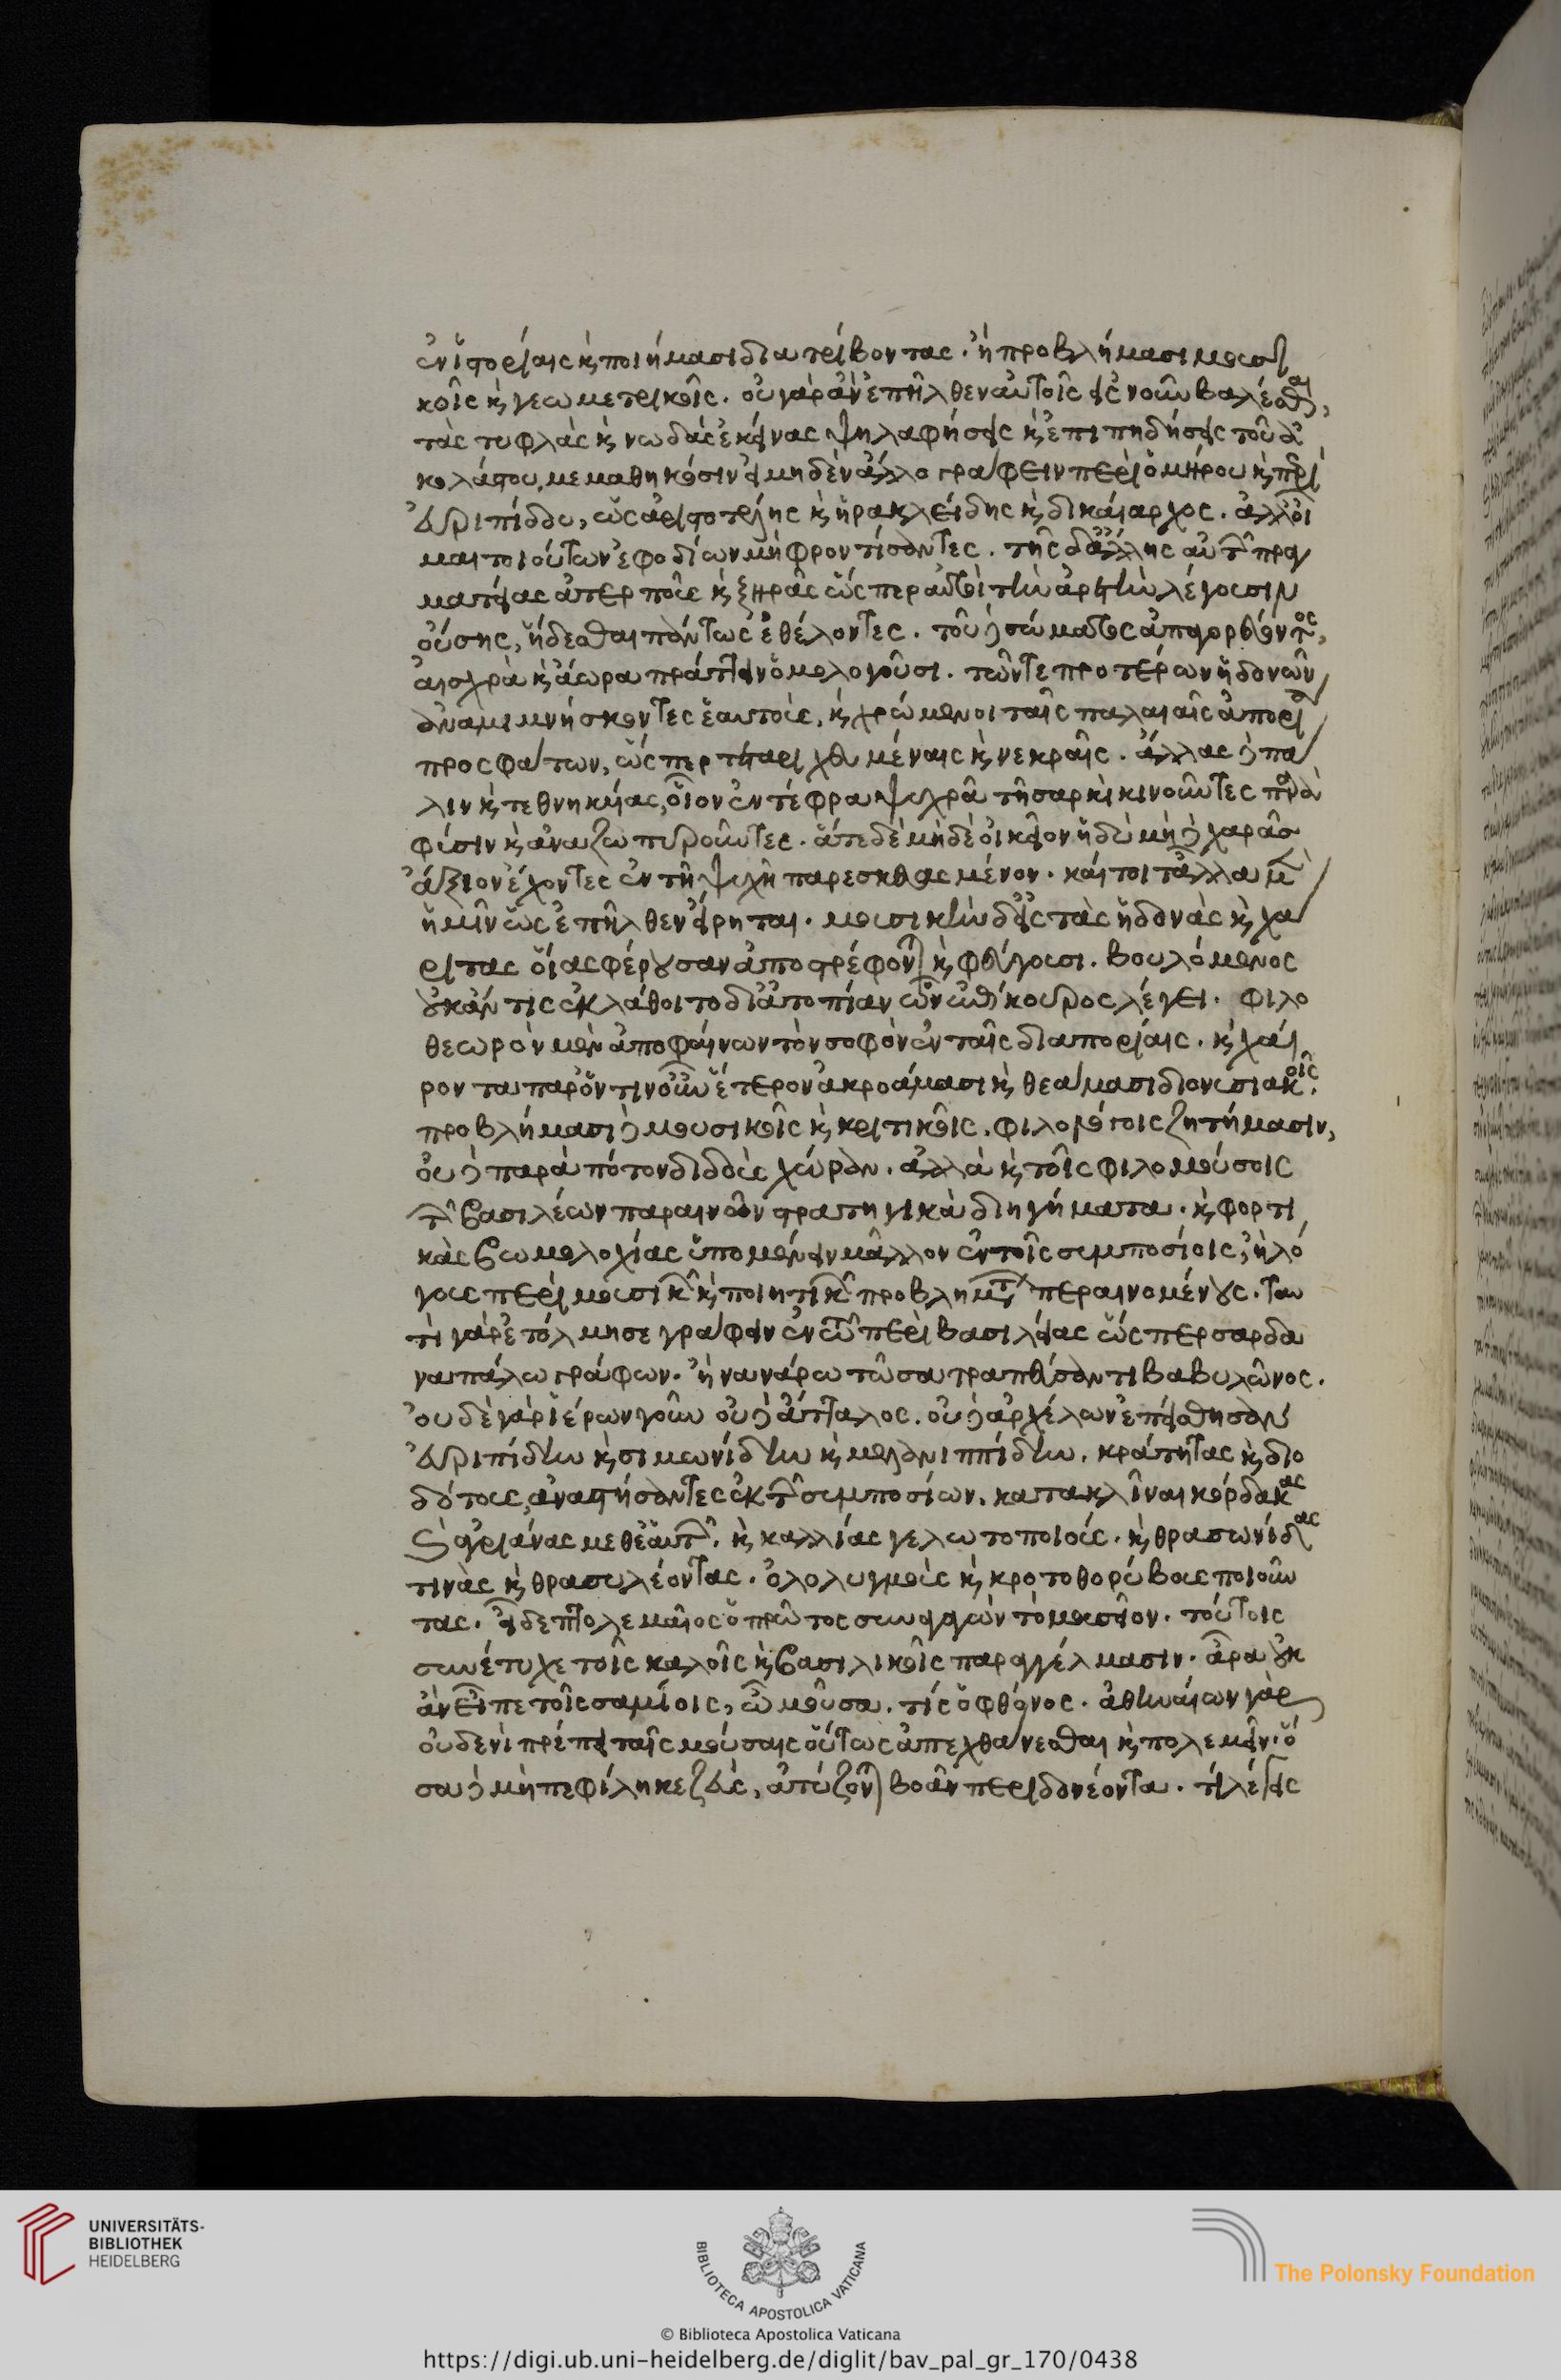 ἐν ἱστορίαις καὶ ποιήμασι διατρίβοντας. ἢ προβλήμασι μουσι
κοῖς καὶ γεωμετρικοῖς. οὐ γὰρ ἂν ἐπῆλθεν αὐτοῖς εἰς νοῦν βαλέσθαι,
τὰς τυφλὰς καὶ νωδὰς ἐκείνας ψηλαφήσεις καὶ ἐπιπηδήσεις τοῦ ἀ
κολάστου, μεμαθηκόσιν εἰ μηδὲν ἄλλο γράφειν περὶ ὁμήρου καὶ περὶ
εὐριπίδου, ὡς ἀριστοτέλης καὶ ἡρακλείδης καὶ δικαίαρχος. ἀλλ' οἶ
μαι τοιούτων ἐφοδίων μὴ φροντίσαντες. τῆς δ' ἄλλης αὐτῶν πραγ
ματείας ἀτερποῦς καὶ ξηρᾶς ὥσπερ αὐτοὶ τὴν ἀρετὴν λέγουσιν
οὔσης, ἥδεσθαι πάντως ἐθέλοντες. τοῦ δὲ σώματος ἀπαγορεύοντος,
αἰσχρὰ καὶ ἄωρα πράττειν ὁμολογοῦσι. τῶν τε προτέρων ἡδονῶν
ἀναμιμνήσκοντες ἑαυτοὺς, καὶ χρώμενοι ταῖς παλαιαῖς ἀπορίᾳ
προσφάτων, ὥσπερ τεταριχευμέναις καὶ νεκραῖς. ἄλλας δὲ πά
λιν καὶ τεθνηκυίας, οἷον ἐν τέφρα ψυχρᾶ τῆ σαρκὶ κινοῦντες παρὰ
φύσιν καὶ ἀναζωπυροῦντες. ἅτε δὲ μηδὲ οἰκεῖον ἡδὺ μὴ δὲ χαρᾶς
ἄξιον ἔχοντες ἐν τῆ ψυχῆ παρεσκευασμένον. καίτοι τἄλλα μὲν
ἡμῖν ὡς ἐπῆλθεν εἴρηται. μουσικὴν δ' εἰς τὰς ἡδονὰς καὶ χά
ριτας οἵας φέρουσαν ἀποστρέφονται καὶ φεύγουσι. βουλόμενος
οὐκ ἄν τις ἐκλάθοιτο δι' ἀτοπίαν ὧν ἐπίκουρος λέγει. φιλο
θέωρον μὲν ἀποφαίνων τὸν σοφὸν ἐν ταῖς διαπορίαις. καὶ χαί
ροντα παρ' ὁντινοῦν ἕτερον ἀκροάμασι καὶ θεάμασι διονυσιακοῖς.
προβλήμασι δὲ μουσικοῖς καὶ κριτικοῖς. φιλολόγοις ζητήμασιν,
οὐδὲ παρὰ πότον διδοὺς χώραν. ἀλλὰ καὶ τοῖς φιλομούσοις
τῶν βασιλέων παραινῶν στρατηγικὰ διηγήματα. καὶ φορτι
κὰς βωμολοχίας ὑπομένειν μᾶλλον ἐν τοῖς συμποσίοις, ἢ λό
γους περὶ μουσικῶν καὶ ποιητικῶν προβλημάτων περαινομένους. ταυ
τὶ γὰρ ἐτόλμησε γράφειν ἐν τῶ περὶ βασιλείας ὥσπερ σαρδα
ναπάλω γράφων. ἢ ναναρω τῶ σατραπεύσαντι βαβυλῶνος.
οὐδὲ γὰρ ἱέρων γοῦν οὐδὲ ἄτταλος. οὐδὲ ἀρχέλων ἐπείσθησαν
εὐριπίδην καὶ σιμωνίδην καὶ μελανιππίδην. κράτητας καὶ διο
δότους, ἀναστήσαντες ἐκ τῶν συμποσίων. κατακλῖναι κόρδακας
καὶ ἀγριάνας μεθ' ἑαυτῶν. καὶ καλλίας γελωτοποιούς. καὶ θρασωνίδας
τινὰς καὶ θρασυλέοντας. ὀλολυγμοὺς καὶ κροτοθορύβους ποιοῦν
τας. εἰ δὲ πτολεμαῖος ὁ πρῶτος συναγαγὼν τὸ μουσεῖον. τούτοις
συνέτυχε τοῖς καλοῖς καὶ βασιλικοῖς παραγγέλμασιν. ἆρα οὐκ
ἂν εἶπε τοῖς σαμίοις, ὦ μοῦσα. τίς ὁ φθόνος. ἀθηναίων γὰρ
οὐδενὶ πρέπει ταῖς μούσαις οὕτως ἀπεχθάνεσθαι καὶ πολεμεῖν. ὅ
σα δὲ μὴ πεφίληκε ζεὺς, ἀτύζονται βοὰν πιερίδων ἀΐοντα. τί λέγεις
UNIVERSITÄTS-
BIBLIOTHEK
HEIDELBERG
BIBLIOTECA APOSTOLICA VATICANA
The Polonsky Foundation
© Biblioteca Apostolica Vaticana
https://digi.ub.uni-heidelberg.de/diglit/bav_pal_gr_170/0438